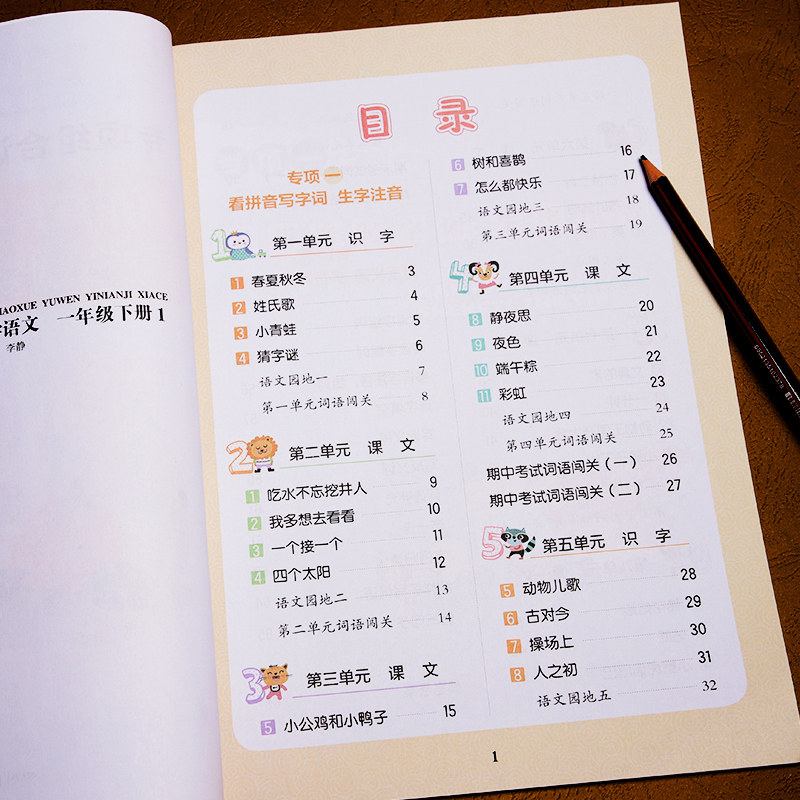 IAOXUE YUWEN YINIANJI XIACE
语文 一年级下册 1
李静
目 录
专项一
看拼音写字词 生字注音
1 第一单元 识 字
1 春夏秋冬 3
2 姓氏歌 4
3 小青蛙 5
4 猜字谜 6
语文园地一 7
第一单元词语闯关 8
2 第二单元 课 文
1 吃水不忘挖井人 9
2 我多想去看看 10
3 一个接一个 11
4 四个太阳 12
语文园地二 13
第二单元词语闯关 14
3 第三单元 课 文
5 小公鸡和小鸭子 15
6 树和喜鹊 16
7 怎么都快乐 17
语文园地三 18
第三单元词语闯关 19
4 第四单元 课 文
8 静夜思 20
9 夜色 21
10 端午粽 22
11 彩虹 23
语文园地四 24
第四单元词语闯关 25
期中考试词语闯关（一） 26
期中考试词语闯关（二） 27
5 第五单元 识 字
5 动物儿歌 28
6 古对今 29
7 操场上 30
8 人之初 31
语文园地五 32
1